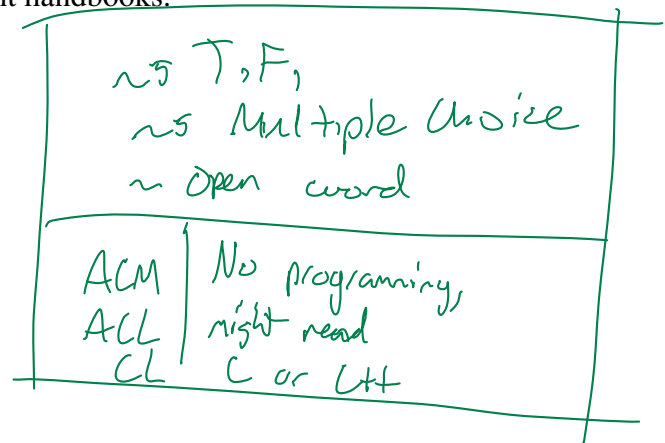 it handbooks.
~5 T,F,
~5 Multiple Choice
~ Open word
ACM | No programming,
ACL | might read
CL | C or C++